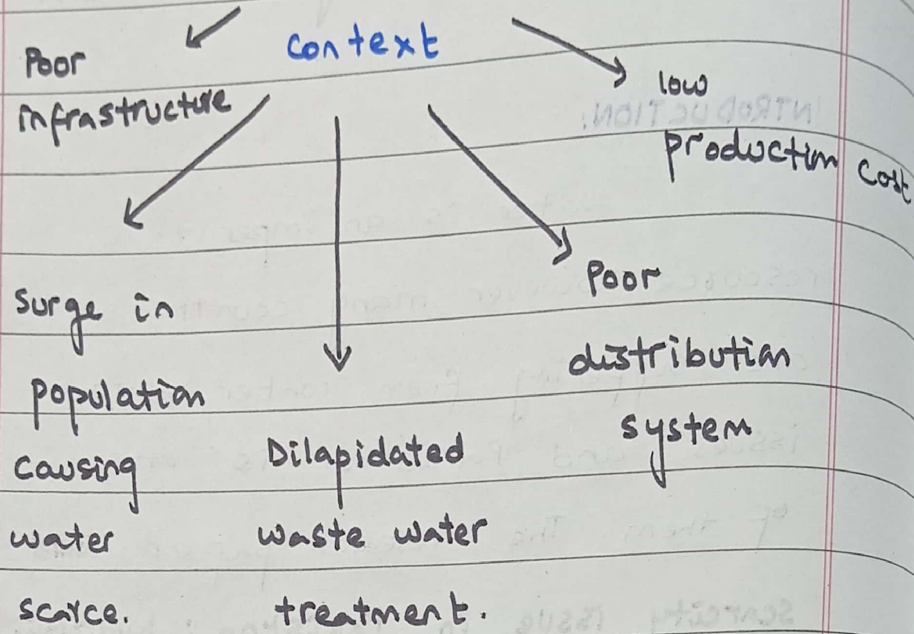 Context
Poor
infrastructure
low
production cost
Surge in
population
causing
water
scarce.
Dilapidated
waste water
treatment.
Poor
distribution
system
INTRODUCTION: